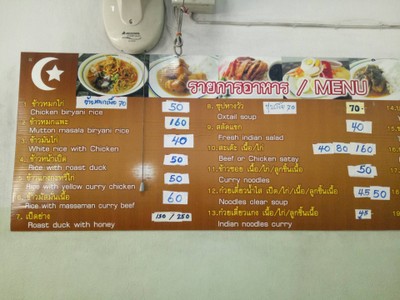 รายการอาหาร / MENU
1. ข้าวหมกไก่
50
Chicken biryani rice
2. ข้าวหมกแพะ
160
Mutton masala biryani rice
3. ข้าวมันไก่
40
White rice with Chicken
4. ข้าวหน้าเป็ด
50
Rice with roast duck
50
Rice with yellow curry chicken
6. ข้าวมัสมั่นเนื้อ
60
Rice with massaman curry beef
7. เป็ดย่าง
130 / 250
Roast duck with honey
8. ซุปหางวัว
70.-
Oxtail soup
9. สลัดแขก
40
Fresh indian salad
10. สะเต๊ะ เนื้อ/ไก่
40 80 160
Beef or Chicken satay
11. ข้าวซอย เนื้อ/ไก่/ลูกชิ้นเนื้อ
50
Curry noodles
12. ก๋วยเตี๋ยวน้ำใส เป็ด/ไก่/ลูกชิ้นเนื้อ
45 50
Noodles clear soup
13. ก๋วยเตี๋ยวแกง เนื้อ/ไก่/ลูกชิ้นเนื้อ
45
Indian noodles curry